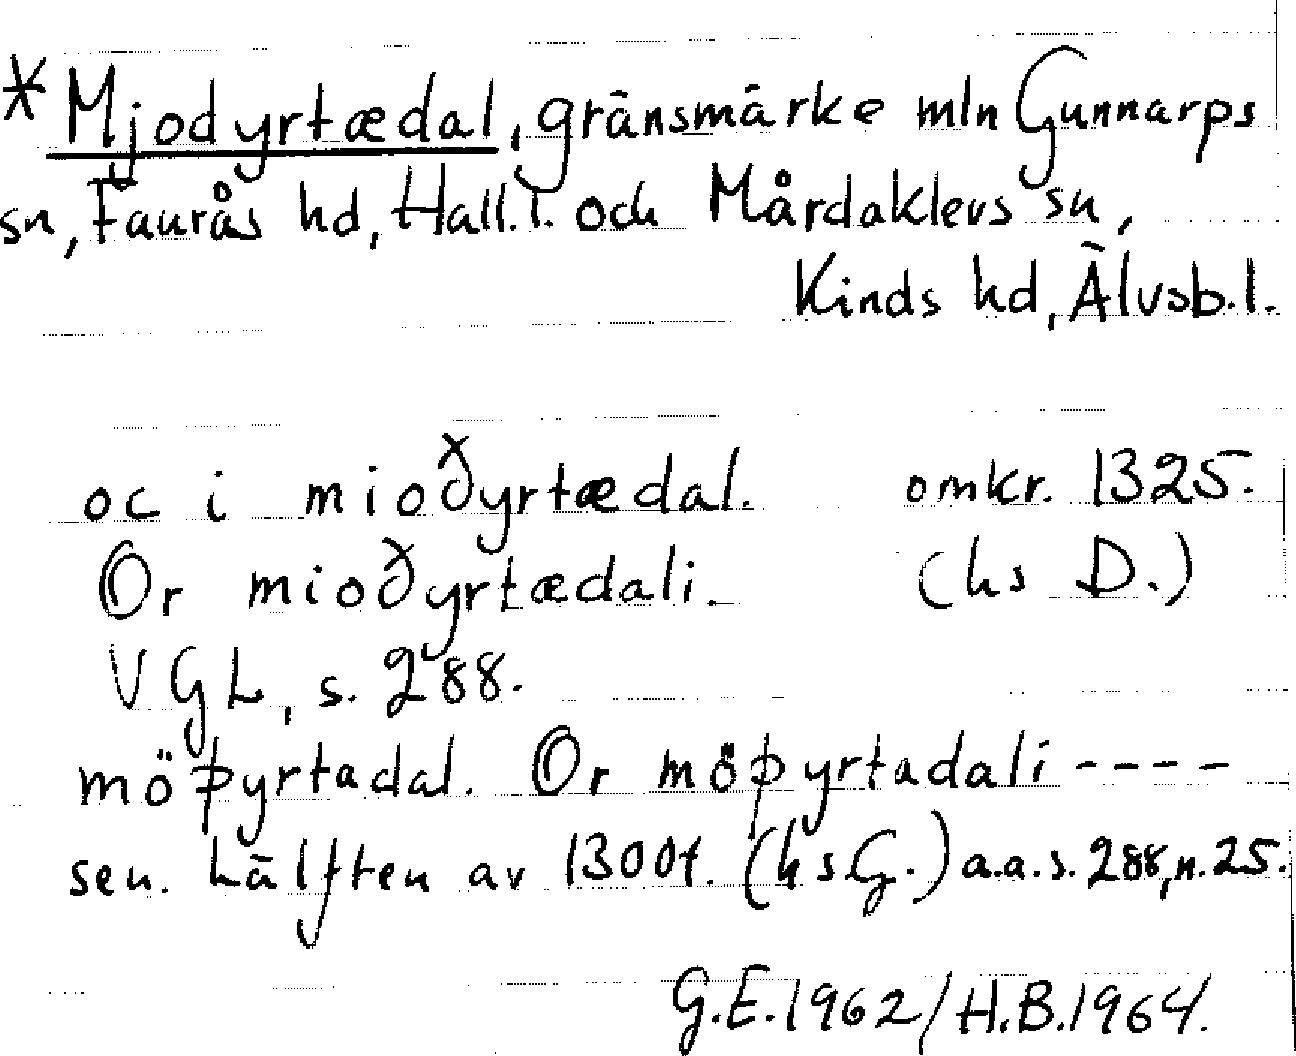 * Mjodyrtædal, gränsmärke mln Gunnarps
sn, Faurås hd, Hall.l. och Mårdaklevs sn,
Kinds hd, Älvsb.l.
oc i mioðyrtædal. omkr. 1325.
Or mioðyrtædali. (hs D.)
VGL, s. 288.
möþyrtadal. Or möþyrtadali ----
sen. hälften av 1300t. (hs G.) a.a.s. 288, n. 25.
G.E. 1962/H.B. 1964.